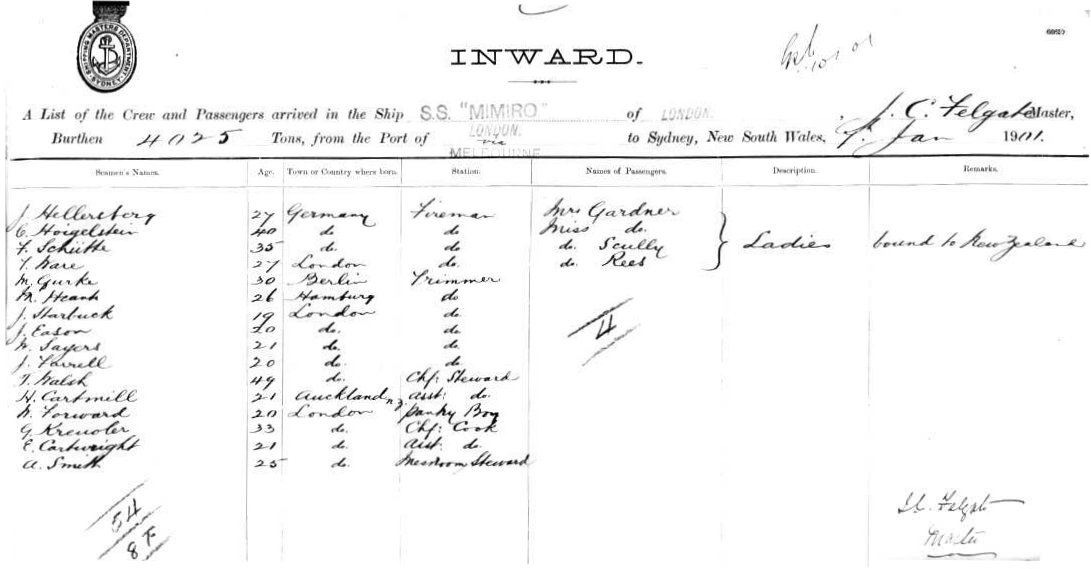 SHIPPING MASTERS DEPARTMENT SYDNEY
INWARD.
A List of the Crew and Passengers arrived in the Ship S.S. "MIMIRO" of LONDON. , J. C. Felgate Master,
Burthen 4025 Tons, from the Port of LONDON. via MELBOURNE to Sydney, New South Wales, 7. Jan 1901.
Seamen's Names. Age. Town or Country where born. Station. Names of Passengers. Description. Remarks.
J. Hellersberg 27 Germany Fireman Mrs Gardner
C. Hoigelstein 40 do do Miss do.
F. Schütte 35 do. do. do. Scully Ladies bound to New Zealand
T. Ware 27 London do. do. Rees
M. Gurke 30 Berlin Trimmer
M. 26 Hamburg do
J. Starbuck 19 London do 4
J. Eason 20 do. do
W. Sayers 21 do. do.
J. Farrell 20 do. do.
T. Walsh 49 do. Chf: Steward
H. Cartmill 21 Auckland n.z. asst: do.
W. Forward 20 London Pantry Boy
G. 33 do. Chf: Cook
E. Cartwright 21 do. asst: do.
A. Smith 25 do. Messroom Steward
54
8
J.C. Felgate
Master